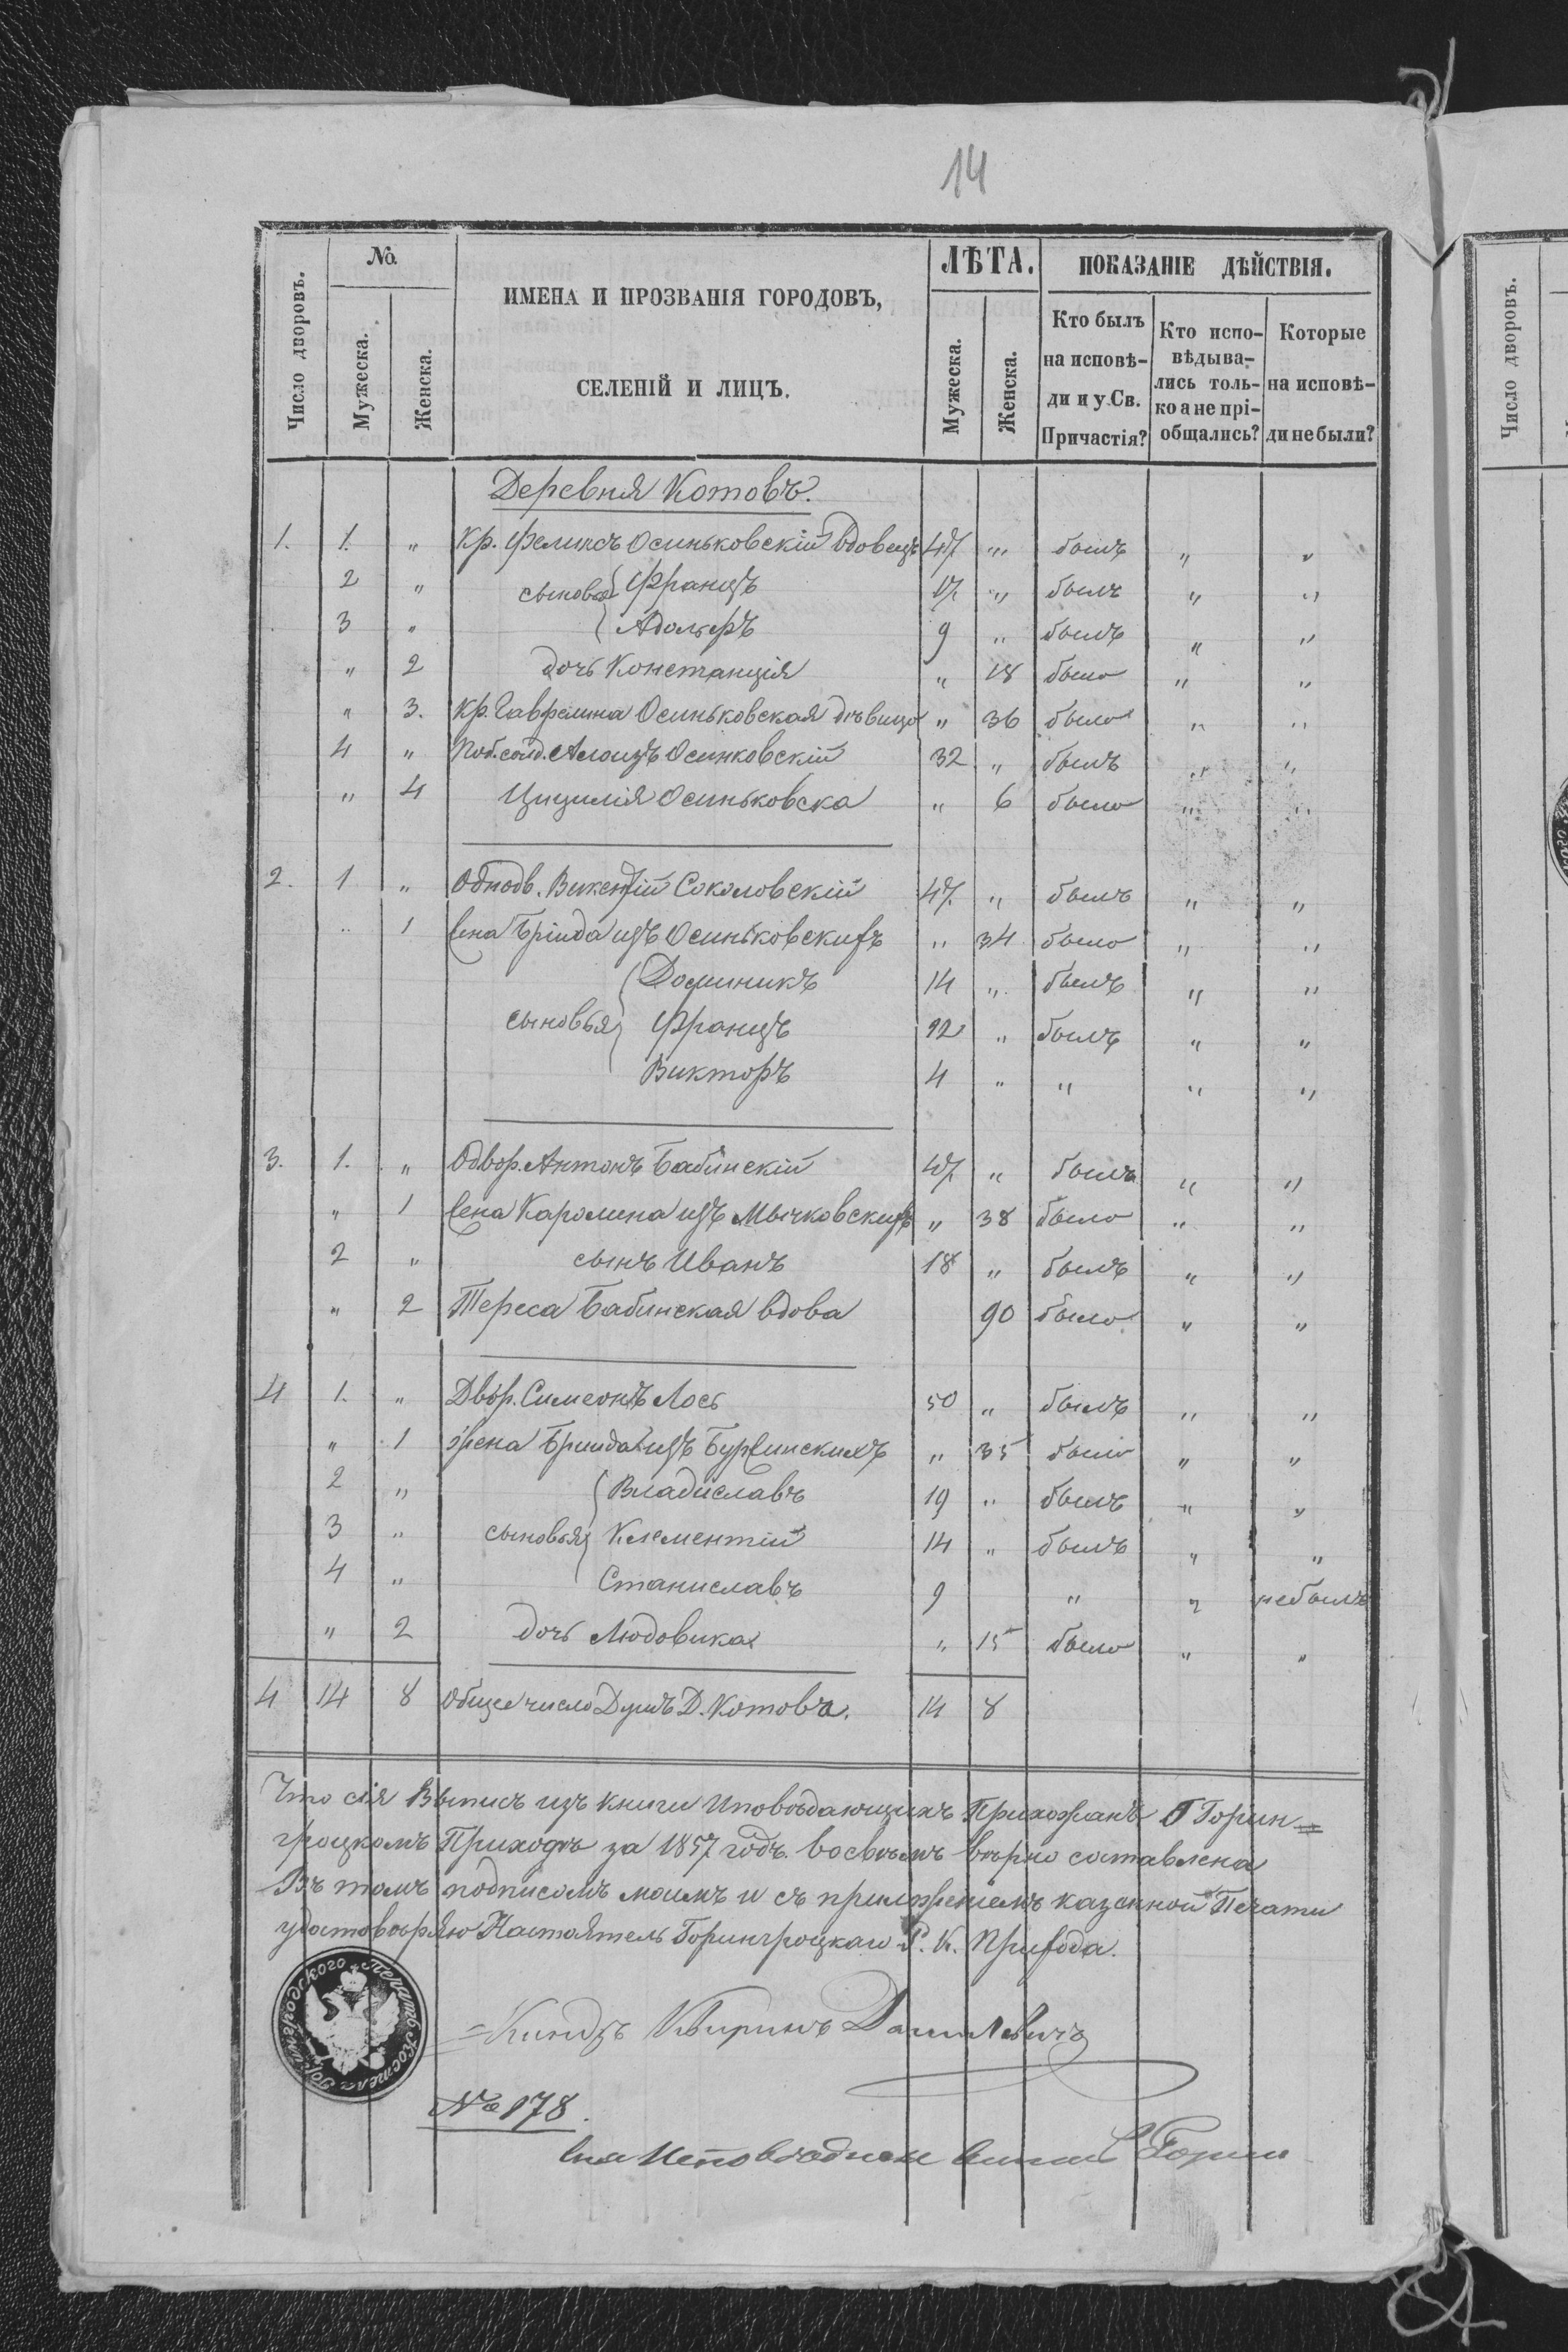 14
Число дворовъ.
№.
Мужеска.
Женска.
ИМЕНА И ПРОЗВАНІЯ ГОРОДОВЪ,
СЕЛЕНІЙ И ЛИЦЪ.
ЛѢТА.
Мужеска.
Женска.
ПОКАЗАНІЕ ДѢЙСТВІЯ.
Кто былъ на исповѣ- ди и у Св. Причастія?
Кто испо- вѣдыва- лись толь- ко а не прі- общались?
Которые на исповѣ- ди не были?
Деревня Котовъ.
1. 1. " Кр. Феликсъ Осиньковскій вдовецъ 47 " былъ " "
2 " сыновья Францъ 17 " былъ " "
3 " Адольфъ 9 " былъ " "
" 2 дочь Констанція " 18 было " "
" 3. Кр. Осиньковская дѣвица " 36 было " "
4 " Алоизъ Осинковскій 32 " былъ " "
" 4 Цицилія Осиньковска " 6 было " "
2. 1 " Однодв. Викентій Соколовскій 47 " былъ " "
" 1 Бригида изъ Осиньковскихъ " 34 было " "
Доминикъ 14 " былъ " "
сыновья Францъ 12 " былъ " "
Викторъ 4 " " " "
3. 1. " Одвор. Антонъ Бабинскій 47 " былъ " "
" 1 Каролина изъ Мычковскихъ " 38 было " "
2 " сынъ Иванъ 18 " былъ " "
" 2 Тереса Бабинская вдова 90 было " "
4 1. " Двор. Симеонъ Лось 50 " былъ " "
" 1 жена изъ " 35 было " "
2 " Владиславъ 19 " былъ " "
3 " сыновья Клементій 14 " былъ " "
4 " Станиславъ 9 " " небылъ
" 2 дочь Людовика " 15 было " "
4 14 8 Общее число Душъ Д. Котовъ. 14 8
Что сія Выпись изъ книги Исповѣдающихъ Прихожанъ Горин=
гроцкомъ Приходѣ за 1857 годъ. во всѣмъ вѣрно составлена
Въ томъ подписомъ моимъ и съ приложеніемъ казенной Печати
удостовѣряю Настоятель Горингроцкаго Р. К. Прихода.
Печать Костела
Ксендзъ
№ 178.